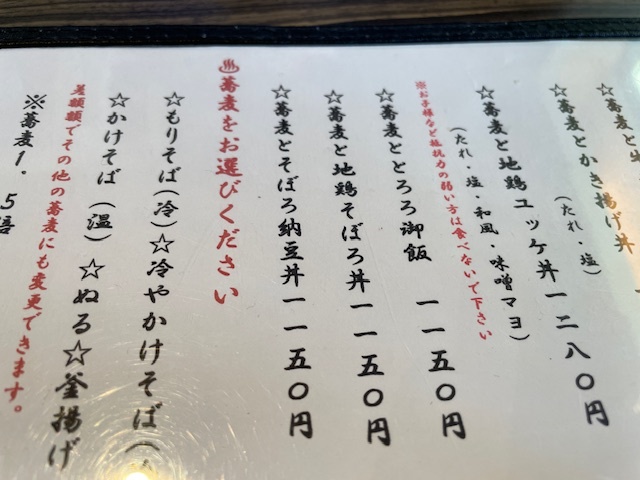 ☆蕎麦と
☆蕎麦とかき揚げ丼
（たれ・塩）
☆蕎麦と地鶏ユッケ丼一二八〇円
（たれ・塩・和風・味噌マヨ）
※お子様など抵抗力の弱い方は食べないで下さい
☆蕎麦ととろろ御飯 一一五〇円
☆蕎麦と地鶏そぼろ丼一一五〇円
☆蕎麦とそぼろ納豆丼一一五〇円
♨蕎麦をお選びください
☆もりそば（冷）☆冷やかけそば（
☆かけそば（温）☆ぬる☆釜揚げ
差額額でその他の蕎麦にも変更できます。
※蕎麦１．５倍